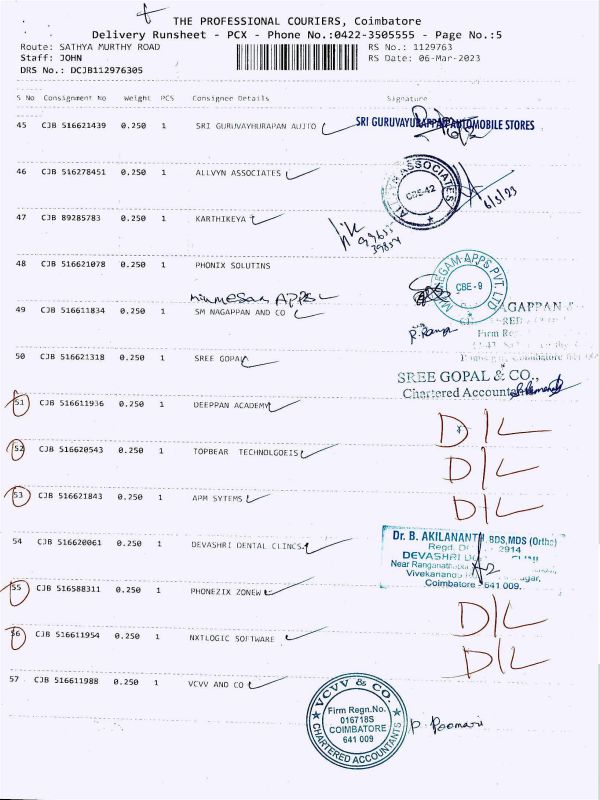 THE PROFESSIONAL COURIERS, Coimbatore
Delivery Runsheet - PCX - Phone No.:0422-3505555 - Page No.:5
Route: SATHYA MURTHY ROAD RS No.: 1129763
Staff: JOHN RS Date: 06-Mar-2023
DRS No.: DCJB112976305
S No Consignment No Weight PCS Consignee Details Signature
45 CJB 516621439 0.250 1 SRI GURUVAYHURAPAN AUJTO SRI GURUVAYURAPPAN AUTOMOBILE STORES
46 CJB 516278451 0.250 1 ALLVYN ASSOCIATES
ALLVYN ASSOCIATES
CBE-42
6/3/23
47 CJB 89285783 0.250 1 KARTHIKEYA
48 CJB 516621078 0.250 1 PHONIX SOLUTINS
APPS
APPS PVT. LTD
CBE - 9
49 CJB 516611834 0.250 1 SM NAGAPPAN AND CO
AGAPPAN &
Firm Re
Coimbatore
50 CJB 516621318 0.250 1 SREE GOPAL
SREE GOPAL & CO.,
Chartered Accountants
51 CJB 516611936 0.250 1 DEEPPAN ACADEMY D/L
52 CJB 516620543 0.250 1 TOPBEAR TECHNOLGOEIS D/L
53 CJB 516621843 0.250 1 APM SYTEMS D/L
54 CJB 516620061 0.250 1 DEVASHRI DENTAL CLINCS.
Dr. B. AKILANANTH, BDS,MDS (Ortho)
Regd. 2914
DEVASHRI
Near Ranganathapuram
Vivekananda
Coimbatore - 641 009.
55 CJB 516588311 0.250 1 PHONEZIX ZONEW D/L
56 CJB 516611954 0.250 1 NXTLOGIC SOFTWARE D/L
57 CJB 516611988 0.250 1 VCVV AND CO
VCVV & CO.
Firm Regn.No.
016718S
COIMBATORE
641 009
CHARTERED ACCOUNTANTS
P. Poomari